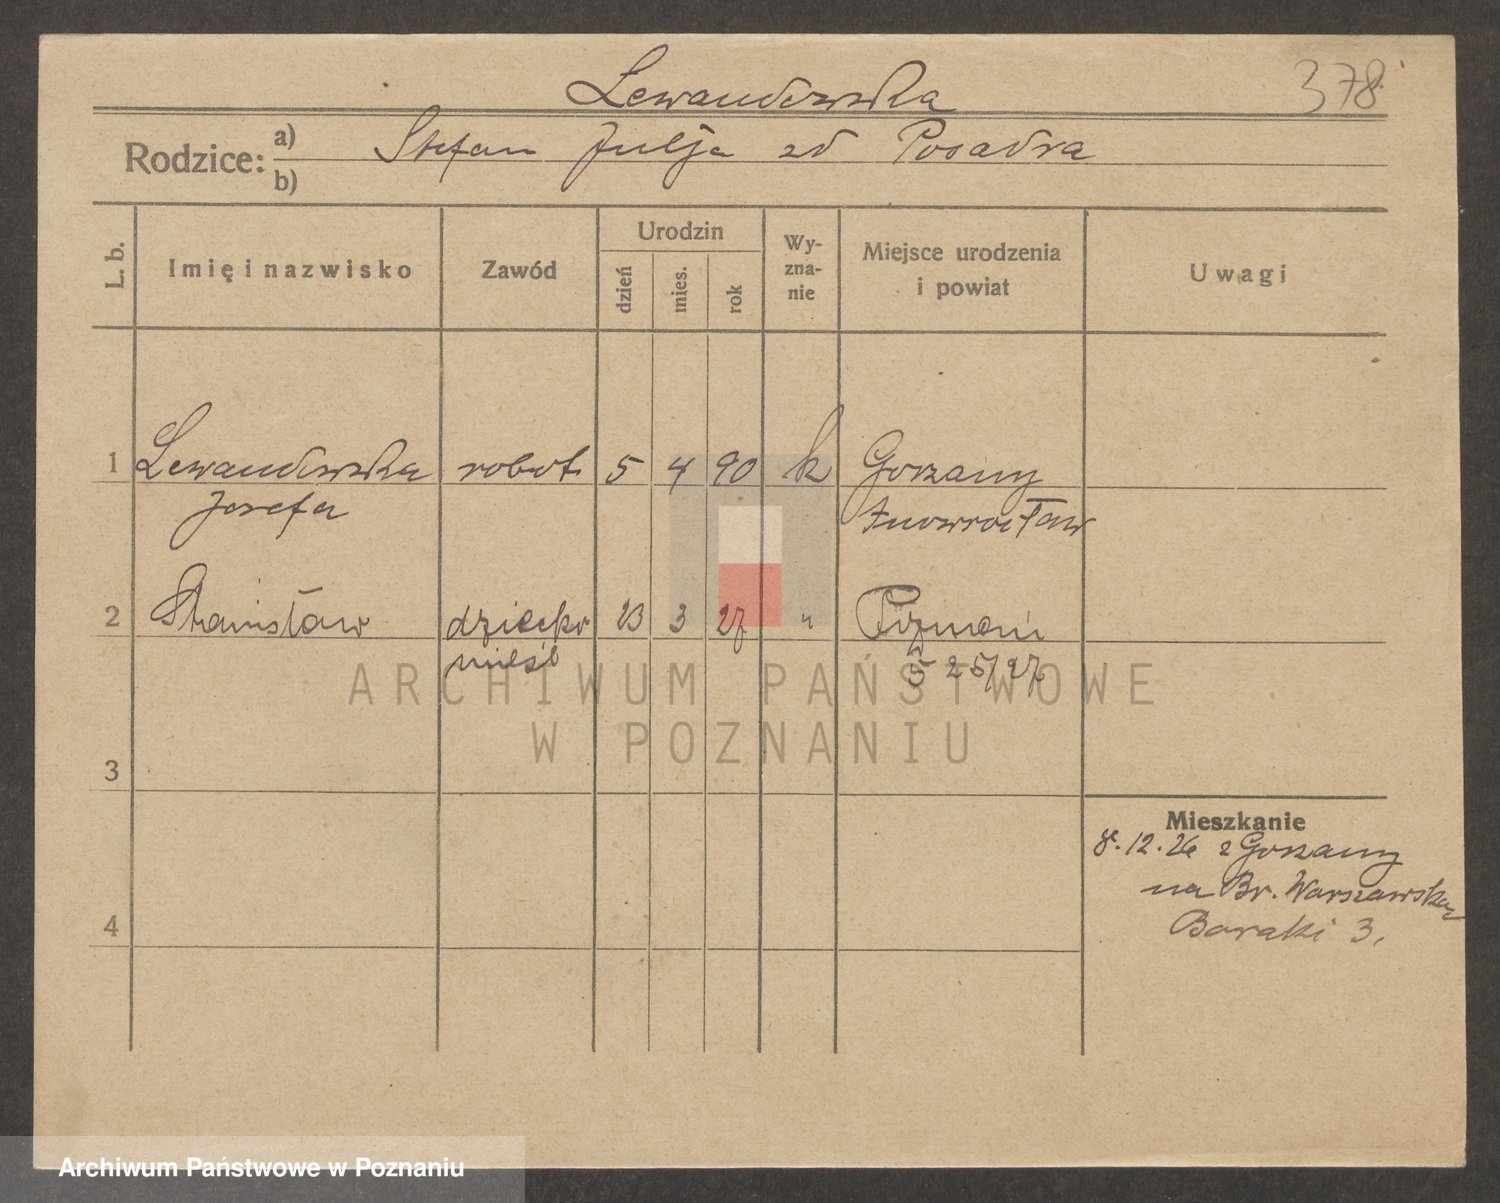 Lewandowska
378
Rodzice: a) Stefan Julja zd Posadra
b)
L. b.
Imię i nazwisko
Zawód
Urodzin
dzień
mies.
rok
Wy-
zna-
nie
Miejsce urodzenia
i powiat
Uwagi
1 Lewandowska robot 5 4 90 k Gorzany
Jozefa Inowrocław
2 Stanisław dziecko 23 3 27 " Poznań
nieśl 5 25/27
ARCHIWUM PAŃSTWOWE
W POZNANIU
3
Mieszkanie
8.12.26 z Gorzany
na Br. Warszawska
Baraki 3.
4
Archiwum Państwowe w Poznaniu